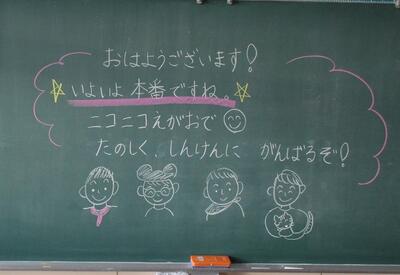 おはようございます!
いよいよ本番ですね。
ニコニコえがおで
たのしく、しんけんに がんばるぞ!